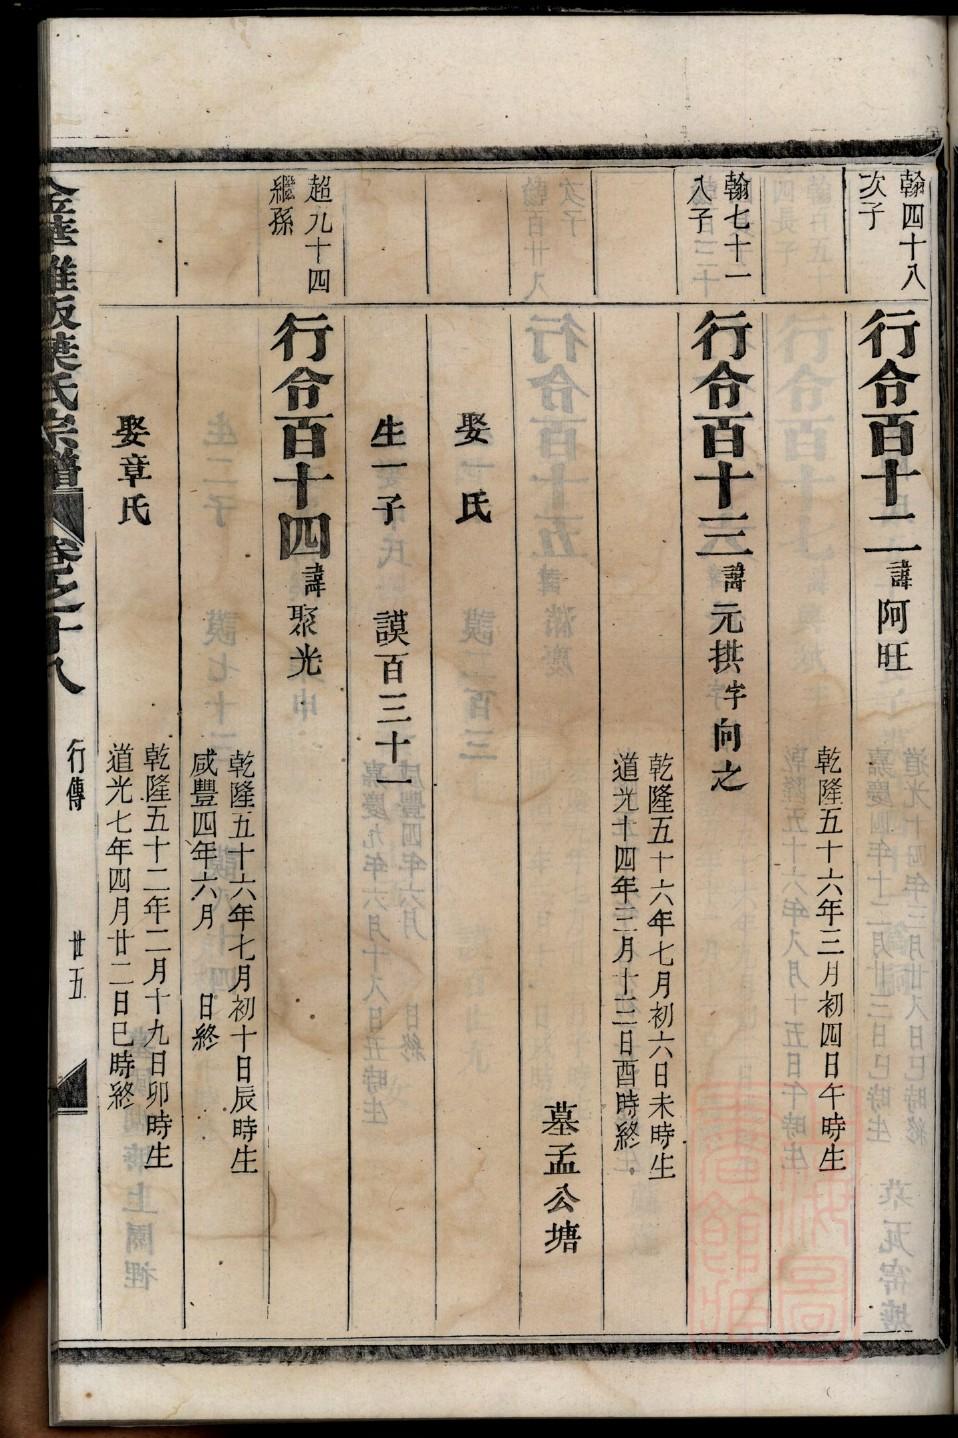 翰四十八
次子
行令百十二諱阿旺
乾隆五十六年三月初四日午時生
翰七十一
入子
行令百十三諱元拱字向之
乾隆五十六年七月初六日未時生
道光十四年三月十三日酉時終
墓孟公塘
娶 氏
生一子 謨百三十一
超九十四
繼孫
行令百十四諱聚光
乾隆五十六年七月初十日辰時生
咸豐四年六月 日終
娶章氏
乾隆五十二年二月十九日卯時生
道光七年四月廿二日巳時終
葉氏宗譜 卷之十八 行傳 廿五